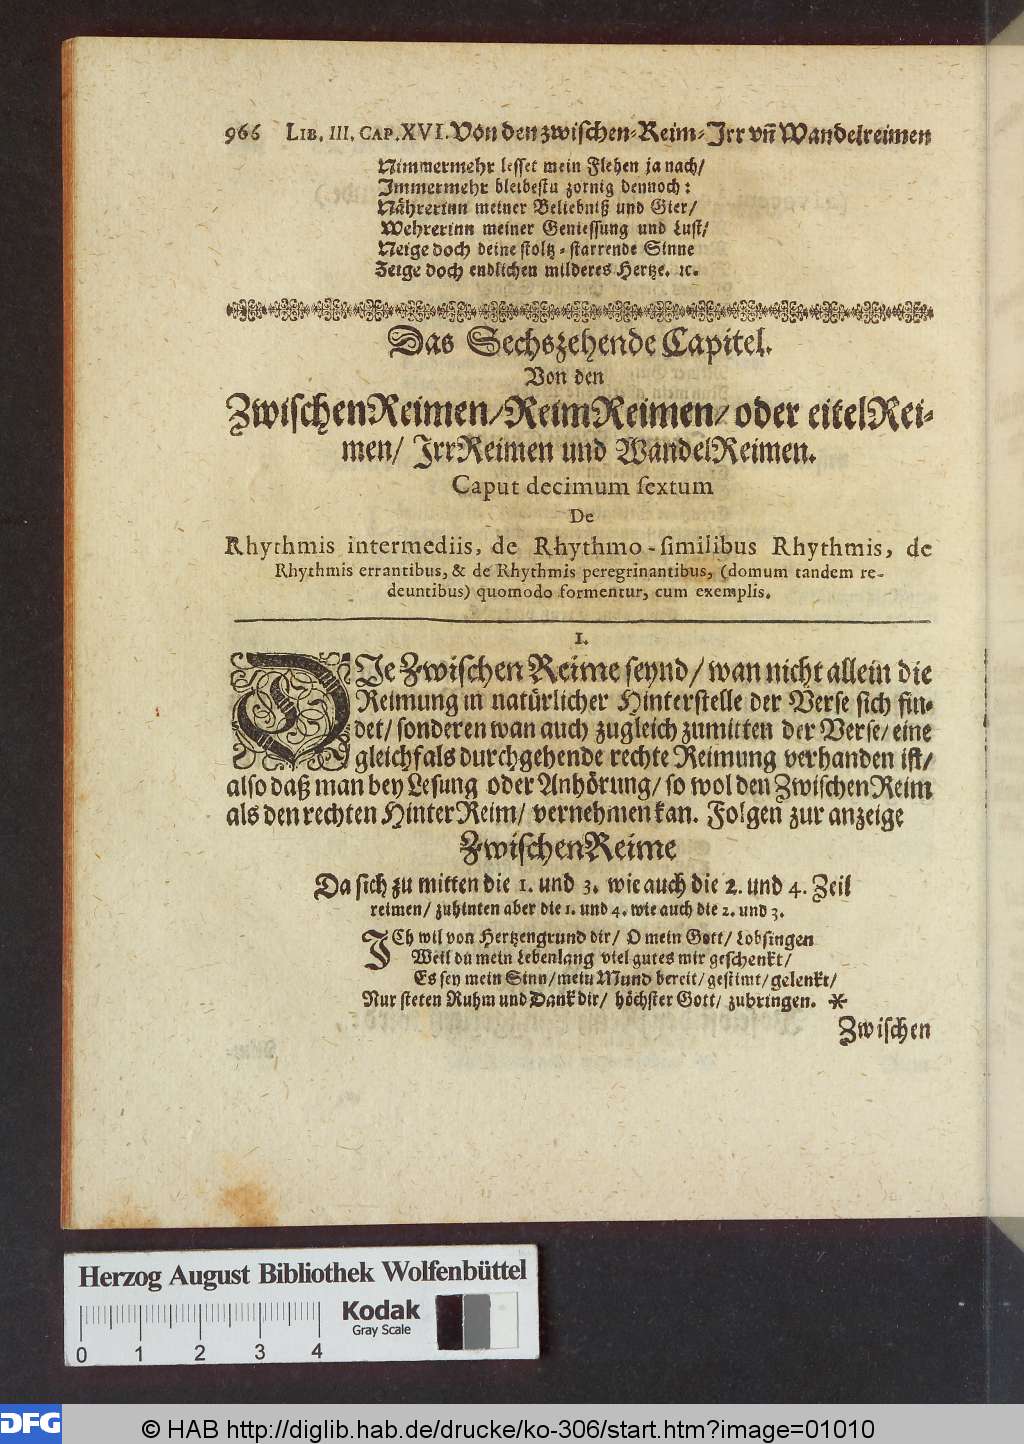 966 LIB. III. CAP. XVI. Von den zwischen-Reim-Irr vn̄ Wandelreimen
Nimmermehr lesset mein Flehen ja nach/
Immermehr bleibestu zornig dennoch:
Nährerinn meiner Beliebniß und Gier/
Wehrerinn meiner Geniessung und Lust/
Neige doch deine stoltz-starrende Sinne
Zeige doch endlichen milderes Hertze. ꝛc.
Das Sechszehende Capitel.
Von den
ZwischenReimen/ReimReimen/ oder eitelRei-
men/ IrrReimen und WandelReimen.
Caput decimum ſextum
De
Rhythmis intermediis, de Rhythmo-ſimilibus Rhythmis, de
Rhythmis errantibus, & de Rhythmis peregrinantibus, (domum tandem re-
deuntibus) quomodo formentur, cum exemplis.
I.
DIe Zwischen Reime seynd/ wan nicht allein die
Reimung in natürlicher Hinterstelle der Verse sich fin-
det/ sonderen wan auch zugleich zumitten der Verse/ eine
gleichfals durchgehende rechte Reimung verhanden ist/
also daß man bey Lesung oder Anhörung/ so wol den ZwischenReim
als den rechten HinterReim/ vernehmen kan. Folgen zur anzeige
ZwischenReime
Da sich zu mitten die 1. und 3. wie auch die 2. und 4. Zeil
reimen/ zuhinten aber die 1. und 4. wie auch die 2. und 3.
ICh wil von Hertzengrund dir/ O mein Gott/ Lobsingen
Weil du mein Lebenlang viel gutes mir geschenkt/
Es sey mein Sinn/ mein Mund bereit/ gestimt/ gelenkt/
Nur steten Ruhm und Dank dir/ höchster Gott/ zubringen. *
Zwischen
Herzog August Bibliothek Wolfenbüttel
Kodak
Gray Scale
0 1 2 3 4
DFG
© HAB http://diglib.hab.de/drucke/ko-306/start.htm?image=01010